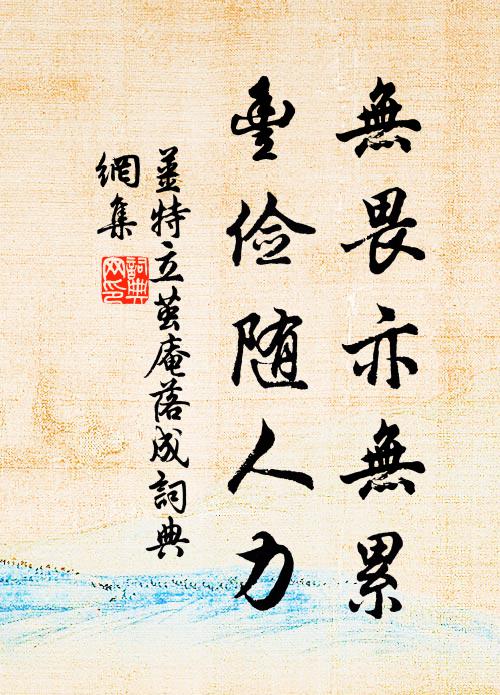 無畏亦無累
豊儉随人力
姜特立茧庵落成詞典
網集
詞典
网印